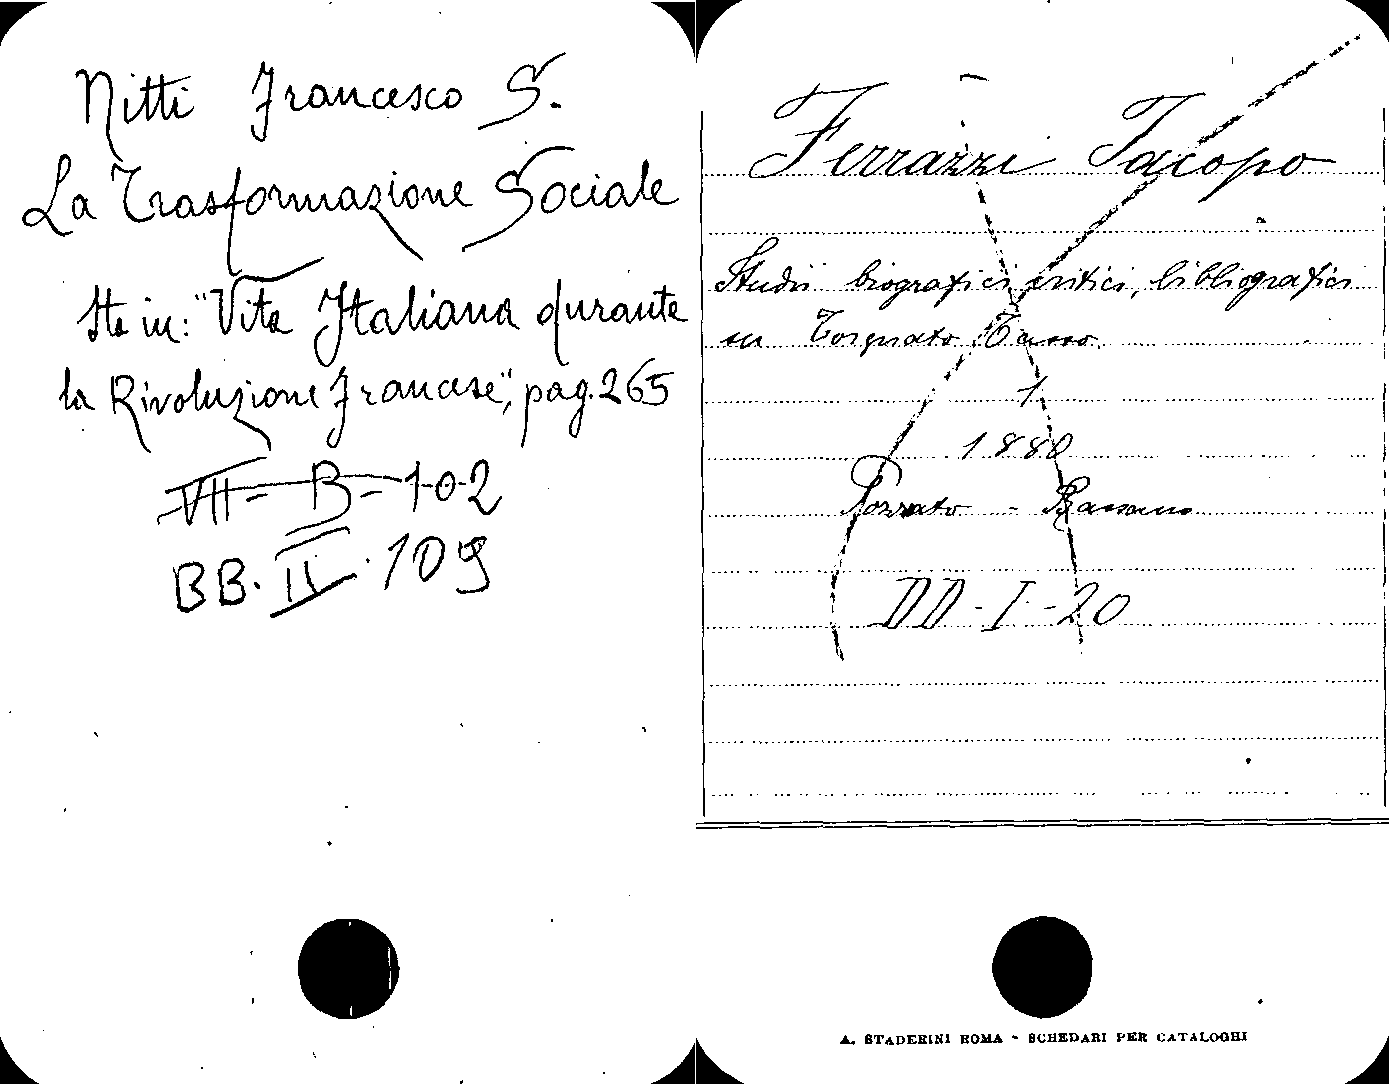 Nitti Francesco S.
La Trasformazione Sociale
Sta in: "Vita Italiana durante
la Rivoluzione Francese", pag. 265
VII - B - 102
BB. II. 109
Ferrazzi Jacopo
Studii biografici critici, bibliografici
su Torquato Tasso.
1
1880
Pozzato - Bassano
DD - I - 20
A. STADERINI ROMA - SCHEDARI PER CATALOGHI